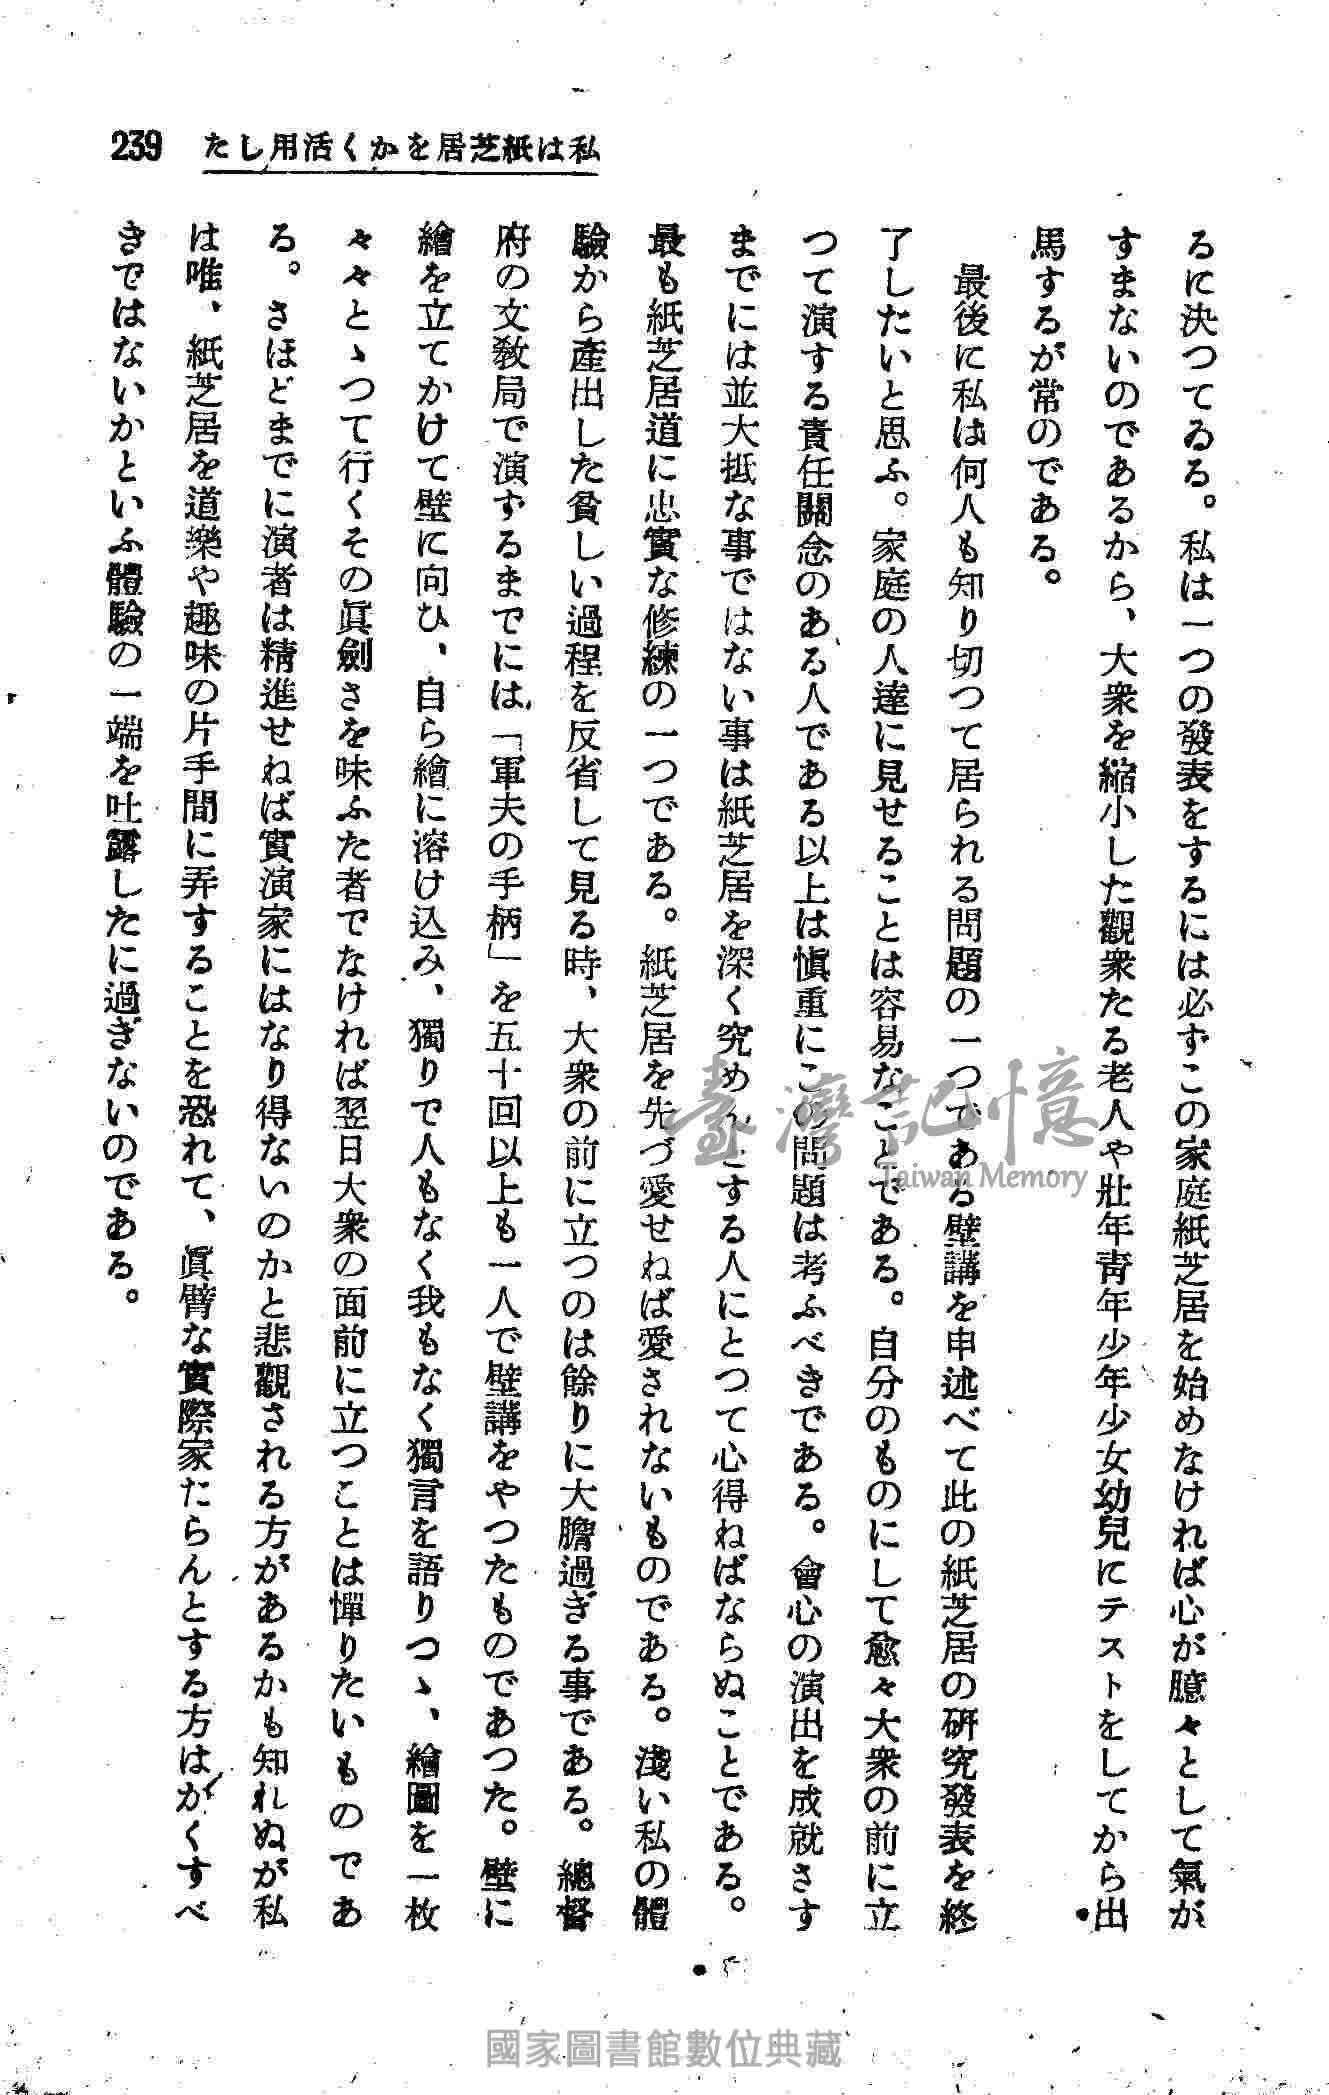 239 たし用活くかを居芝紙は私
るに決つてゐる。私は一つの發表をするには必ずこの家庭紙芝居を始めなければ心が臆々として氣が
すまないのであるから、大衆を縮小した觀衆たる老人や壯年靑年少年少女幼兒にテストをしてから出
馬するが常のである。
最後に私は何人も知り切つて居られる問題の一つである壁講を申述べて此の紙芝居の硏究發表を終
了したいと思ふ。家庭の人達に見せることは容易なことである。自分のものにして愈々大衆の前に立
つて演する責任關念のある人である以上は愼重にこの問題は考ふべきである。會心の演出を成就さす
までには並大抵な事ではない事は紙芝居を深く究めんとする人にとつて心得ねばならぬことである。
最も紙芝居道に忠實な修練の一つである。紙芝居を先づ愛せねば愛されないものである。淺い私の體
驗から產出した貧しい過程を反省して見る時、大衆の前に立つのは餘りに大膽過ぎる事である。總督
府の文敎局で演ずるまでには、「軍夫の手柄」を五十回以上も一人で壁講をやつたものであつた。壁に
繪を立てかけて壁に向ひ、自ら繪に溶け込み、獨りで人もなく我もなく獨言を語りつゝ、繪圖を一枚
々々とゝつて行くその眞劍さを味ふた者でなければ翌日大衆の面前に立つことは憚りたいものであ
る。さほどまでに演者は精進せねば實演家にはなり得ないのかと悲觀される方があるかも知れぬが私
は唯、紙芝居を道樂や趣味の片手間に弄することを恐れて、眞臂な實際家たらんとする方はかくすべ
きではないかといふ體驗の一端を吐露したに過ぎないのである。
臺灣記憶
Taiwan Memory
國家圖書館數位典藏